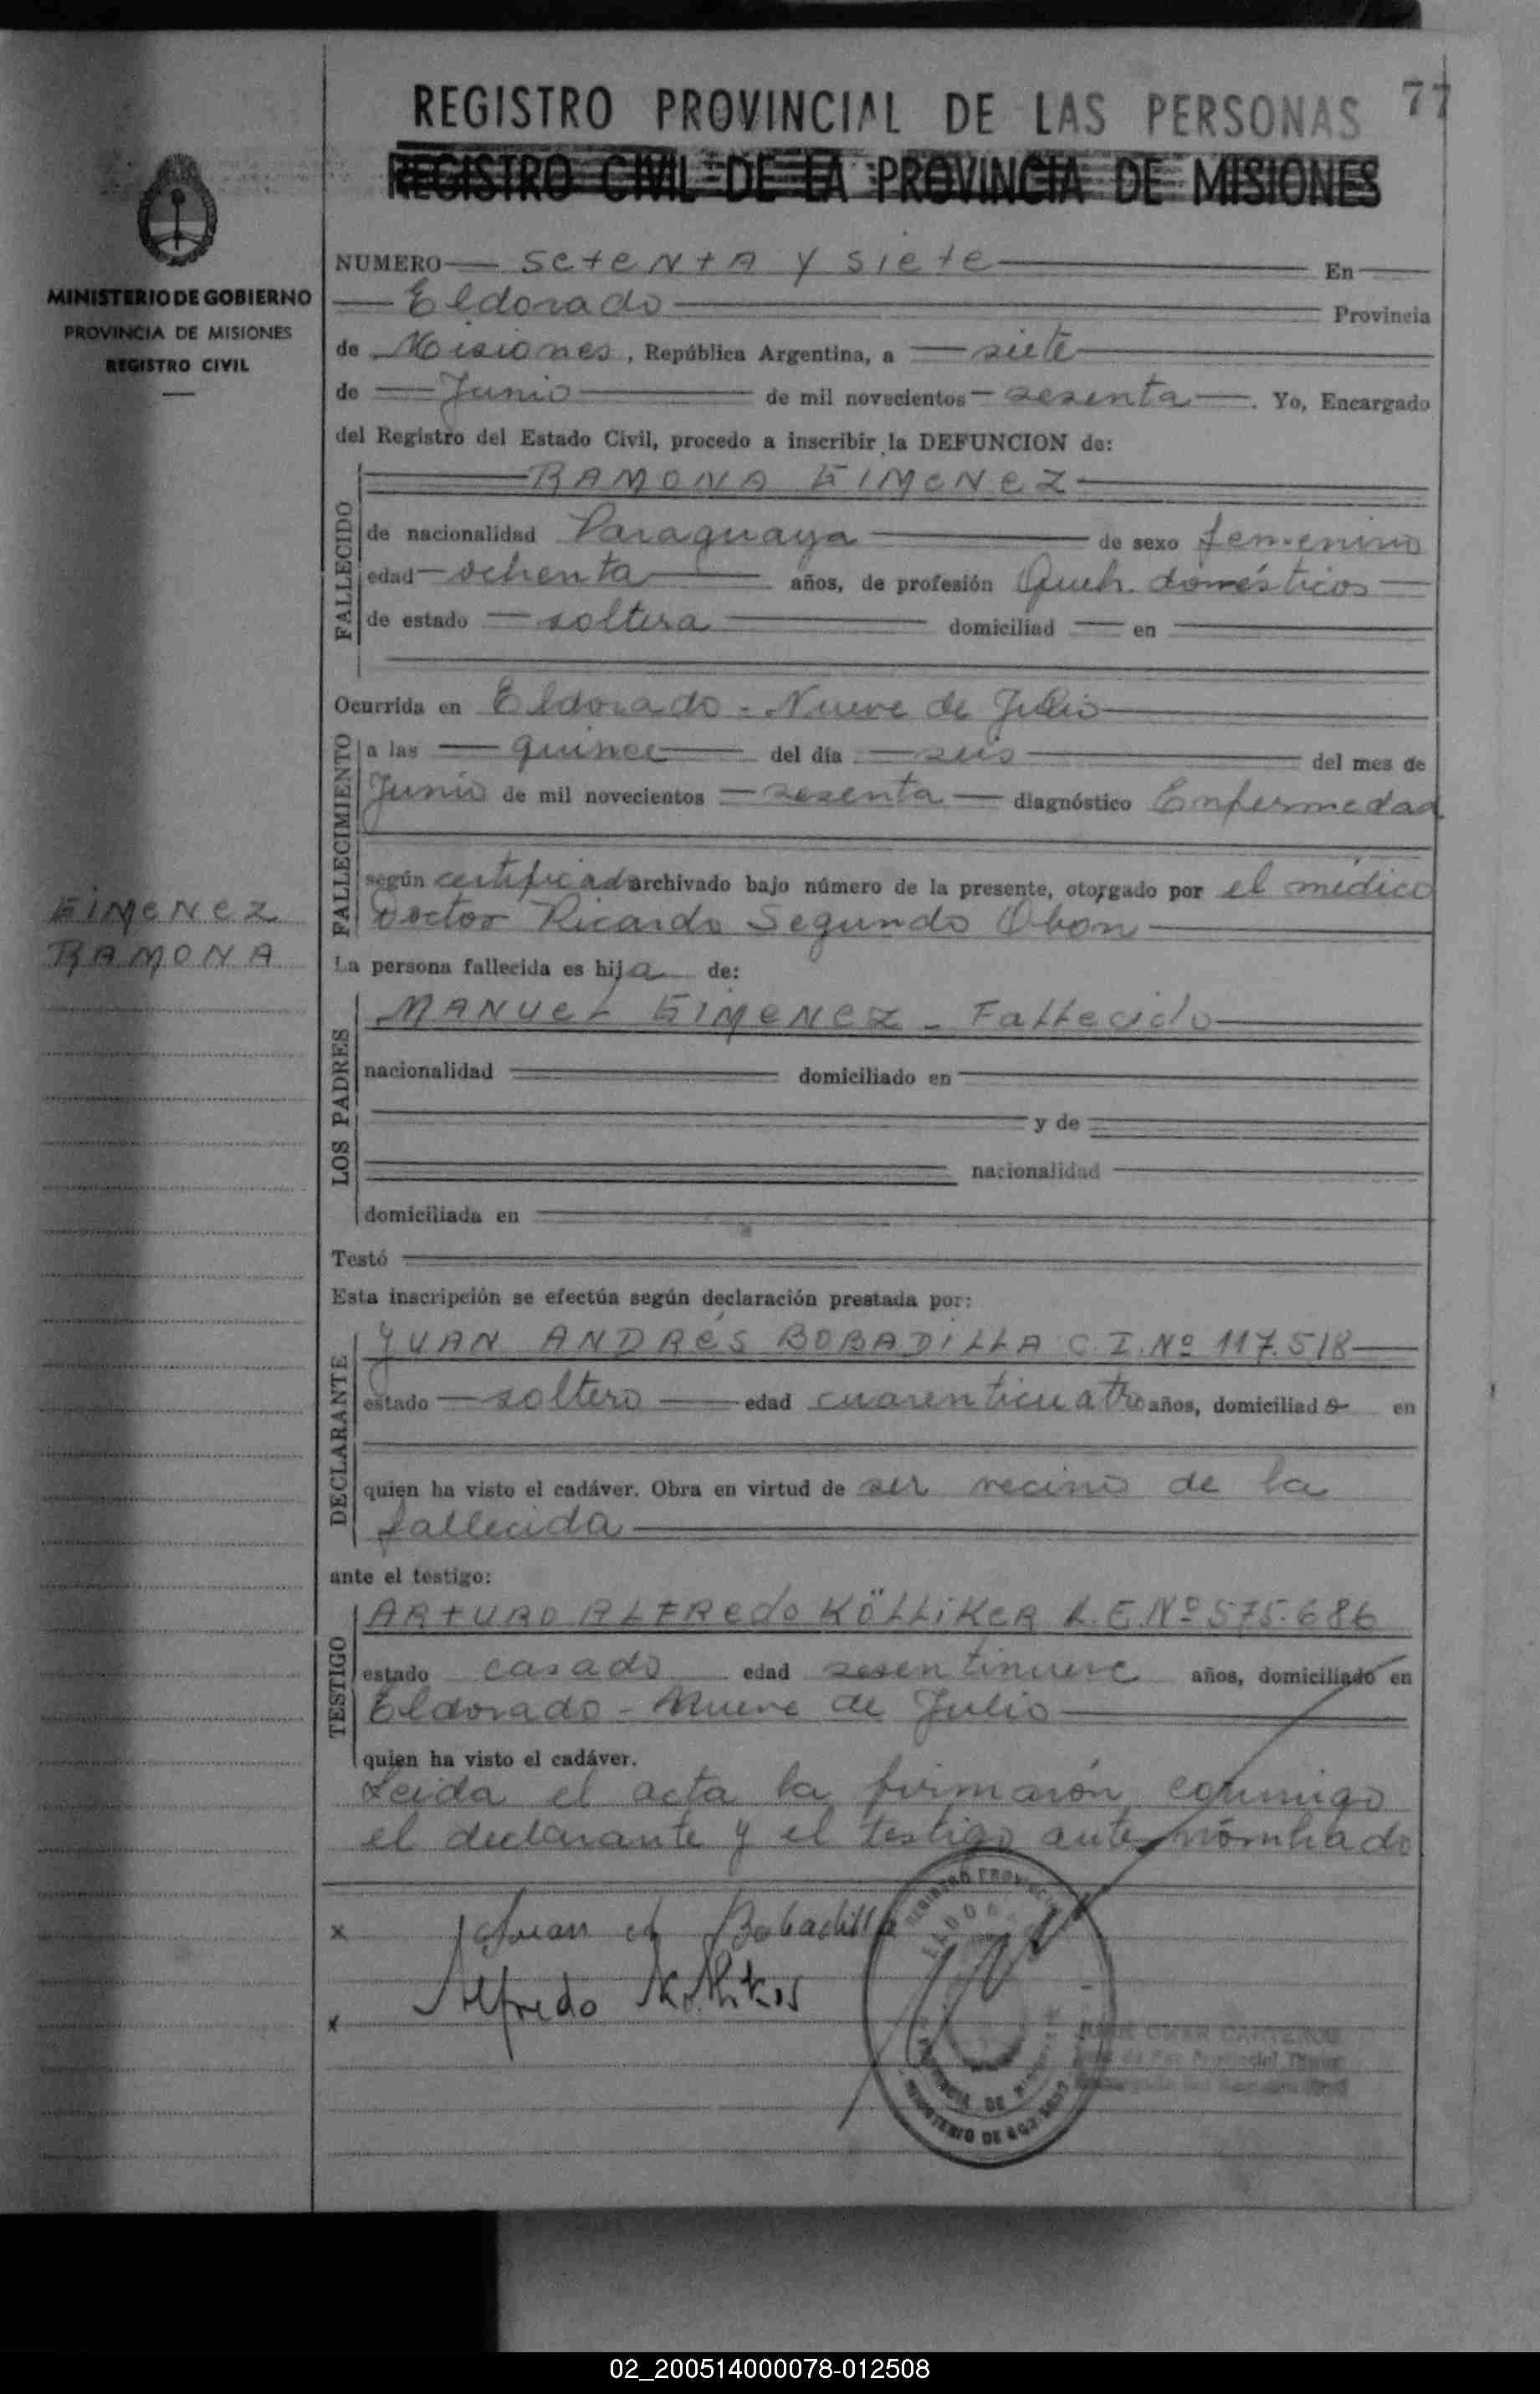 77
REGISTRO PROVINCIAL DE LAS PERSONAS
REGISTRO CIVIL DE LA PROVINCIA DE MISIONES
MINISTERIO DE GOBIERNO
PROVINCIA DE MISIONES
REGISTRO CIVIL
NUMERO setenta y siete En
Eldorado Provincia
de Misiones, República Argentina, a siete
de Junio de mil novecientos sesenta. Yo, Encargado
del Registro del Estado Civil, procedo a inscribir la DEFUNCION de:
RAMONA GIMENEZ
FALLECIDO
de nacionalidad Paraguaya de sexo femenino
edad ochenta años, de profesión Queh. domésticos
de estado soltera domiciliad en
Ocurrida en Eldorado - Nueve de Julio
FALLECIMIENTO
a las quince del día seis del mes de
Junio de mil novecientos sesenta diagnóstico Enfermedad
según certificad archivado bajo número de la presente, otorgado por el médico
Doctor Ricardo Segundo Obon
GIMENEZ
RAMONA
La persona fallecida es hija de:
LOS PADRES
MANUEL GIMENEZ - Fallecido
nacionalidad domiciliado en
y de
nacionalidad
domiciliada en
Testó
Esta inscripción se efectúa según declaración prestada por:
DECLARANTE
JUAN ANDRÉS BOBADILLA C.I. Nº 117.518
estado soltero edad cuarenticuatro años, domiciliado en
quien ha visto el cadáver. Obra en virtud de ser vecino de la
fallecida
ante el testigo:
TESTIGO
ARTURO ALFREdo KÖLLIKER L.E. Nº 575.686
estado casado edad sesentinueve años, domiciliado en
Eldorado - Nueve de Julio
quien ha visto el cadáver.
Leida el acta la firmarón conmigo
el declarante y el testigo antes nómbrado
x Juan A Bobadilla
x Alfredo Kölliker
REGISTRO PROVINCIAL
PROVINCIA DE MISIONES
MINISTERIO DE GOBIERNO
02_200514000078-012508